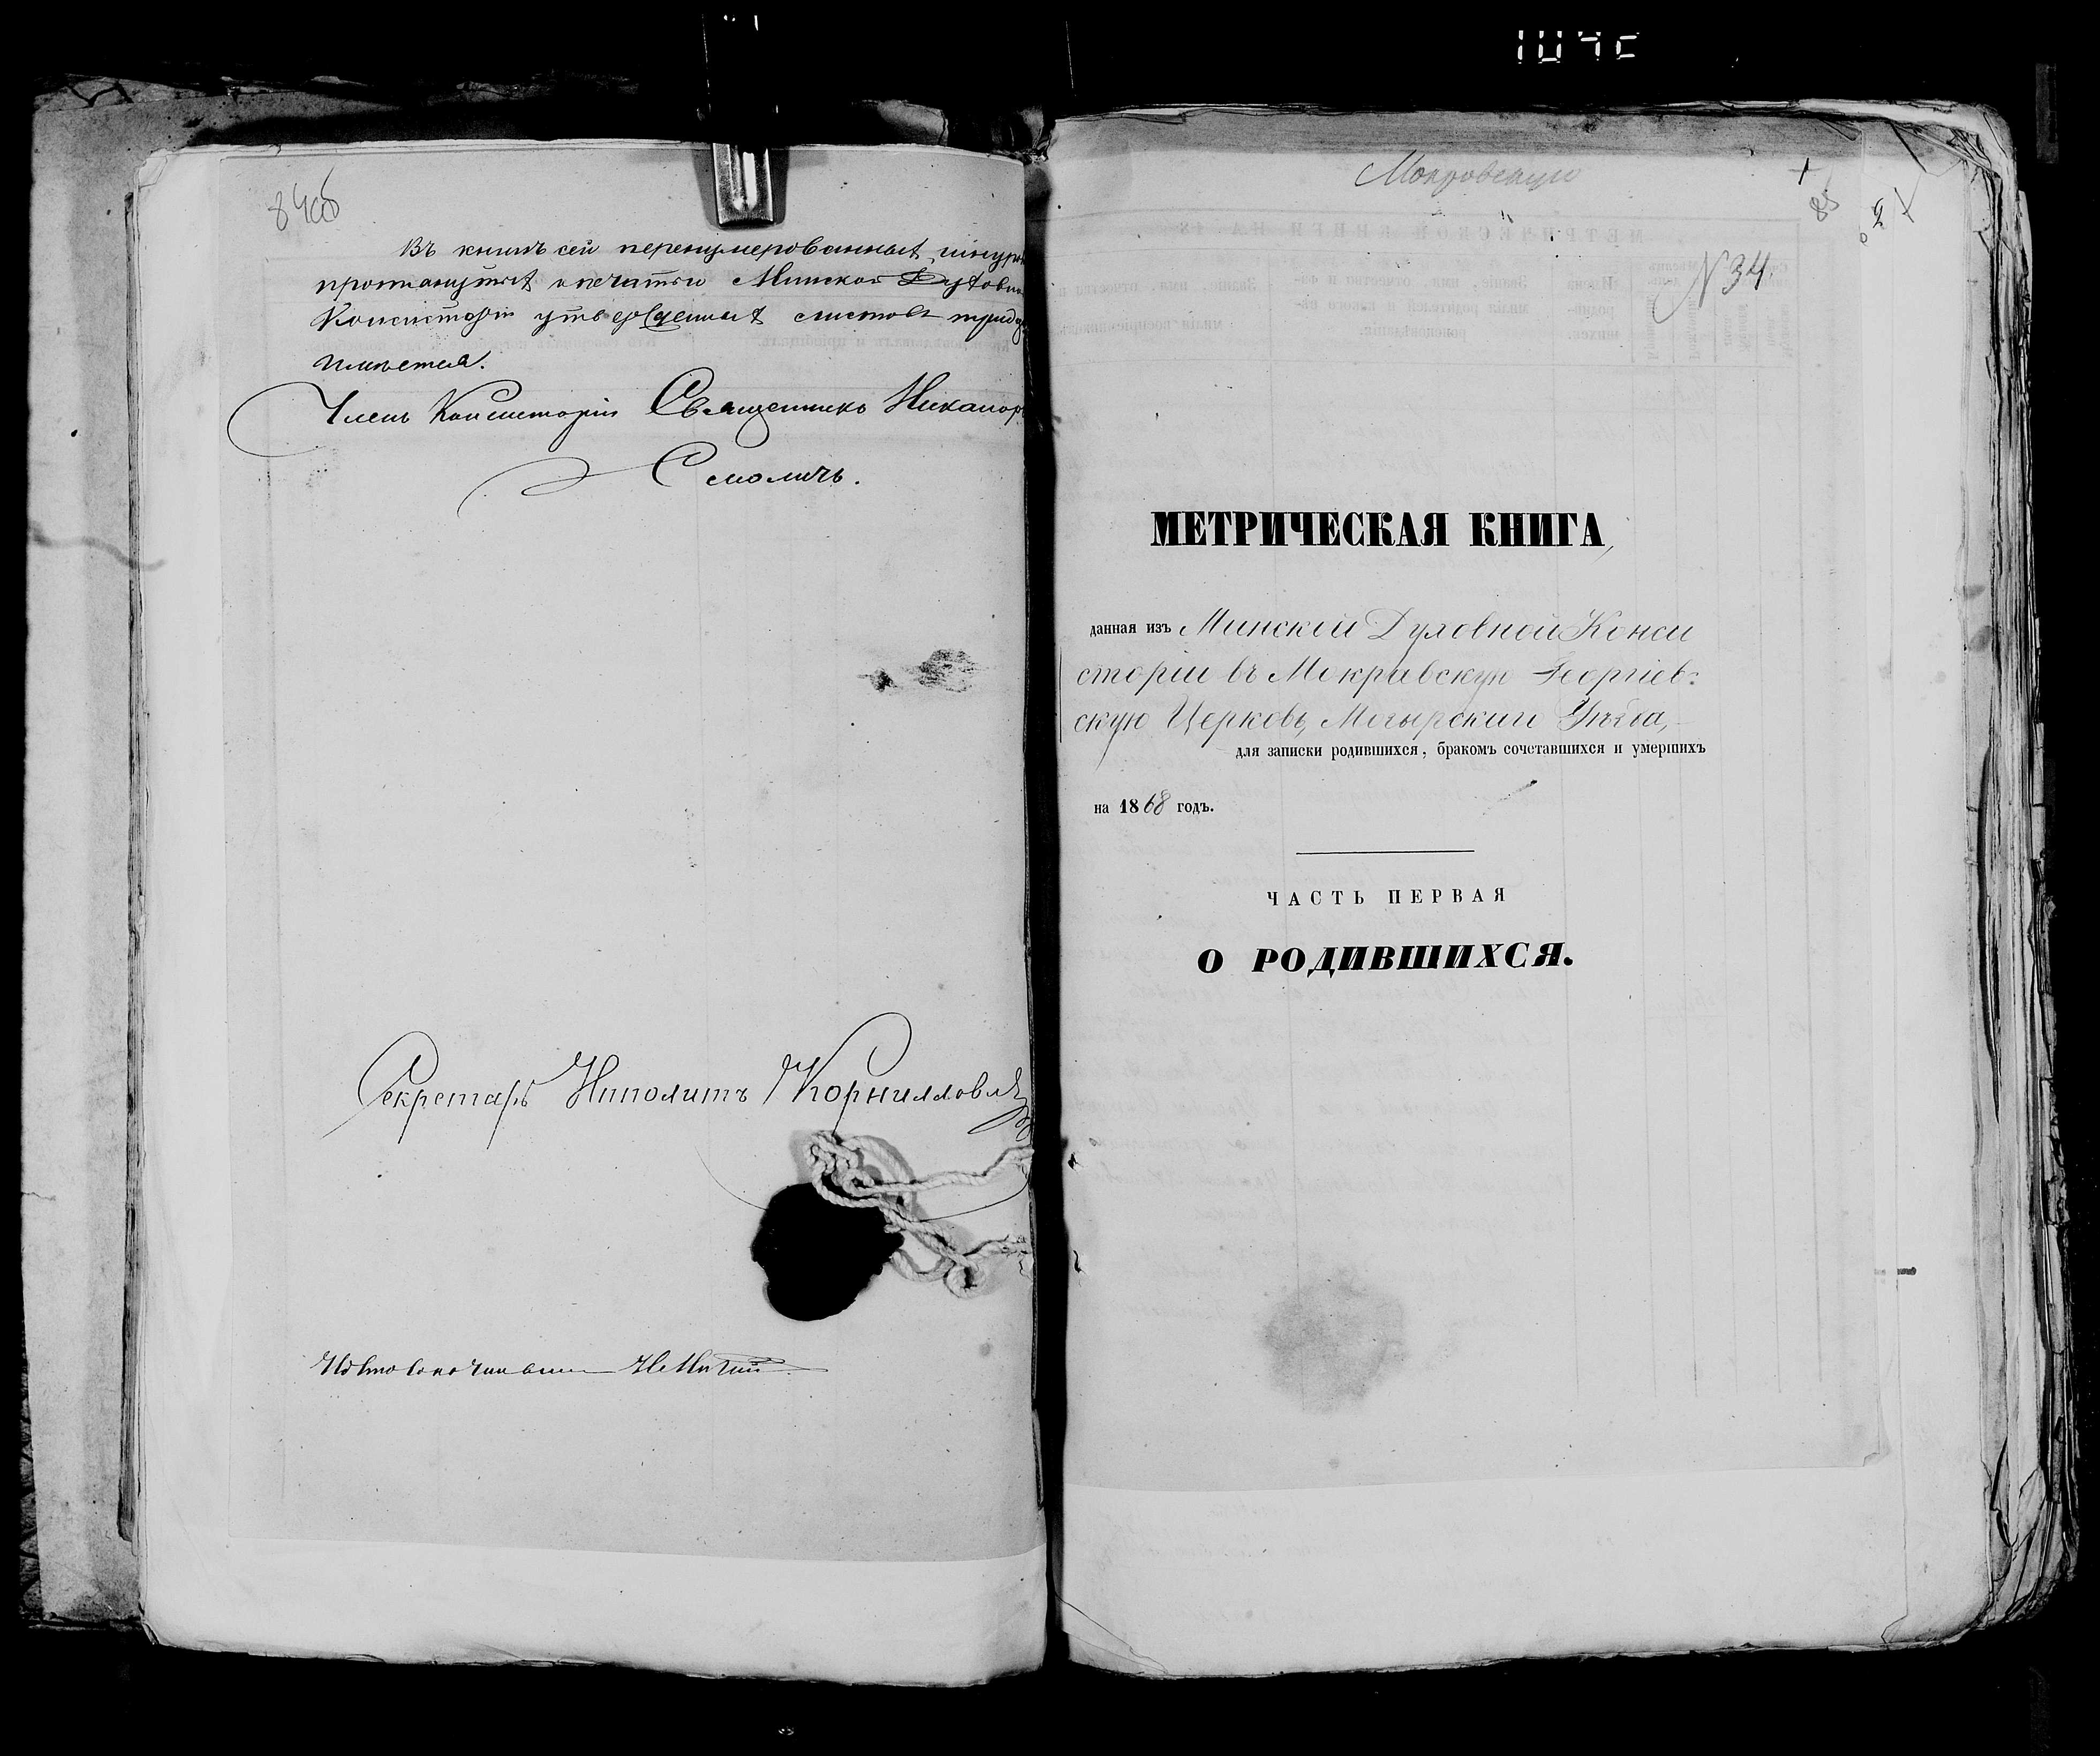 84об
Въ книгѣ сей перенумерованныхъ, шнуро
протянутыхъ и печатью Минской Духовно
Консисторіи утвержденныхъ листовъ
имѣется.
Членъ Консисторіи Священникъ Никаноръ
Смоличъ.
Секретарь Ипполитъ
Мокровскую
85
2
N 34.
МЕТРИЧЕСКАЯ КНИГА,
данная изъ Минской Духовной Конси
сторіи въ Мокравскую Георгіев:
скую Церковь, Мозырскаго Уѣзда,
для записки родившихся, бракомъ сочетавшихся и умершихъ
на 1868 годъ.
ЧАСТЬ ПЕРВАЯ
О РОДИВШИХСЯ.